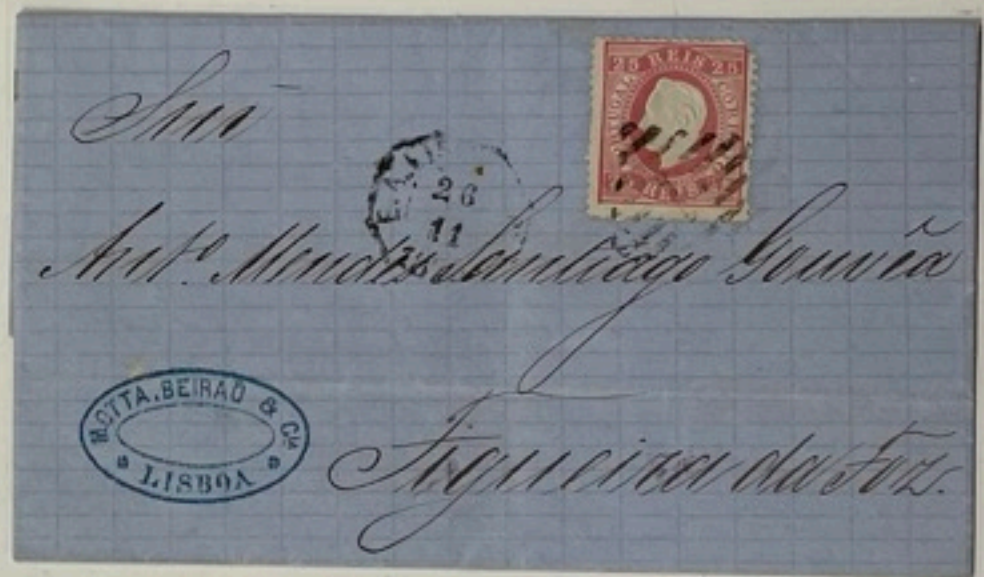 25 REIS 25
PORTUGAL
CORREIO
REIS
Snr
26
11
Antº. Mendes Santiago Gouvêa
MOTTA, BEIRAO & Cia
LISBOA
Figueira da Foz.